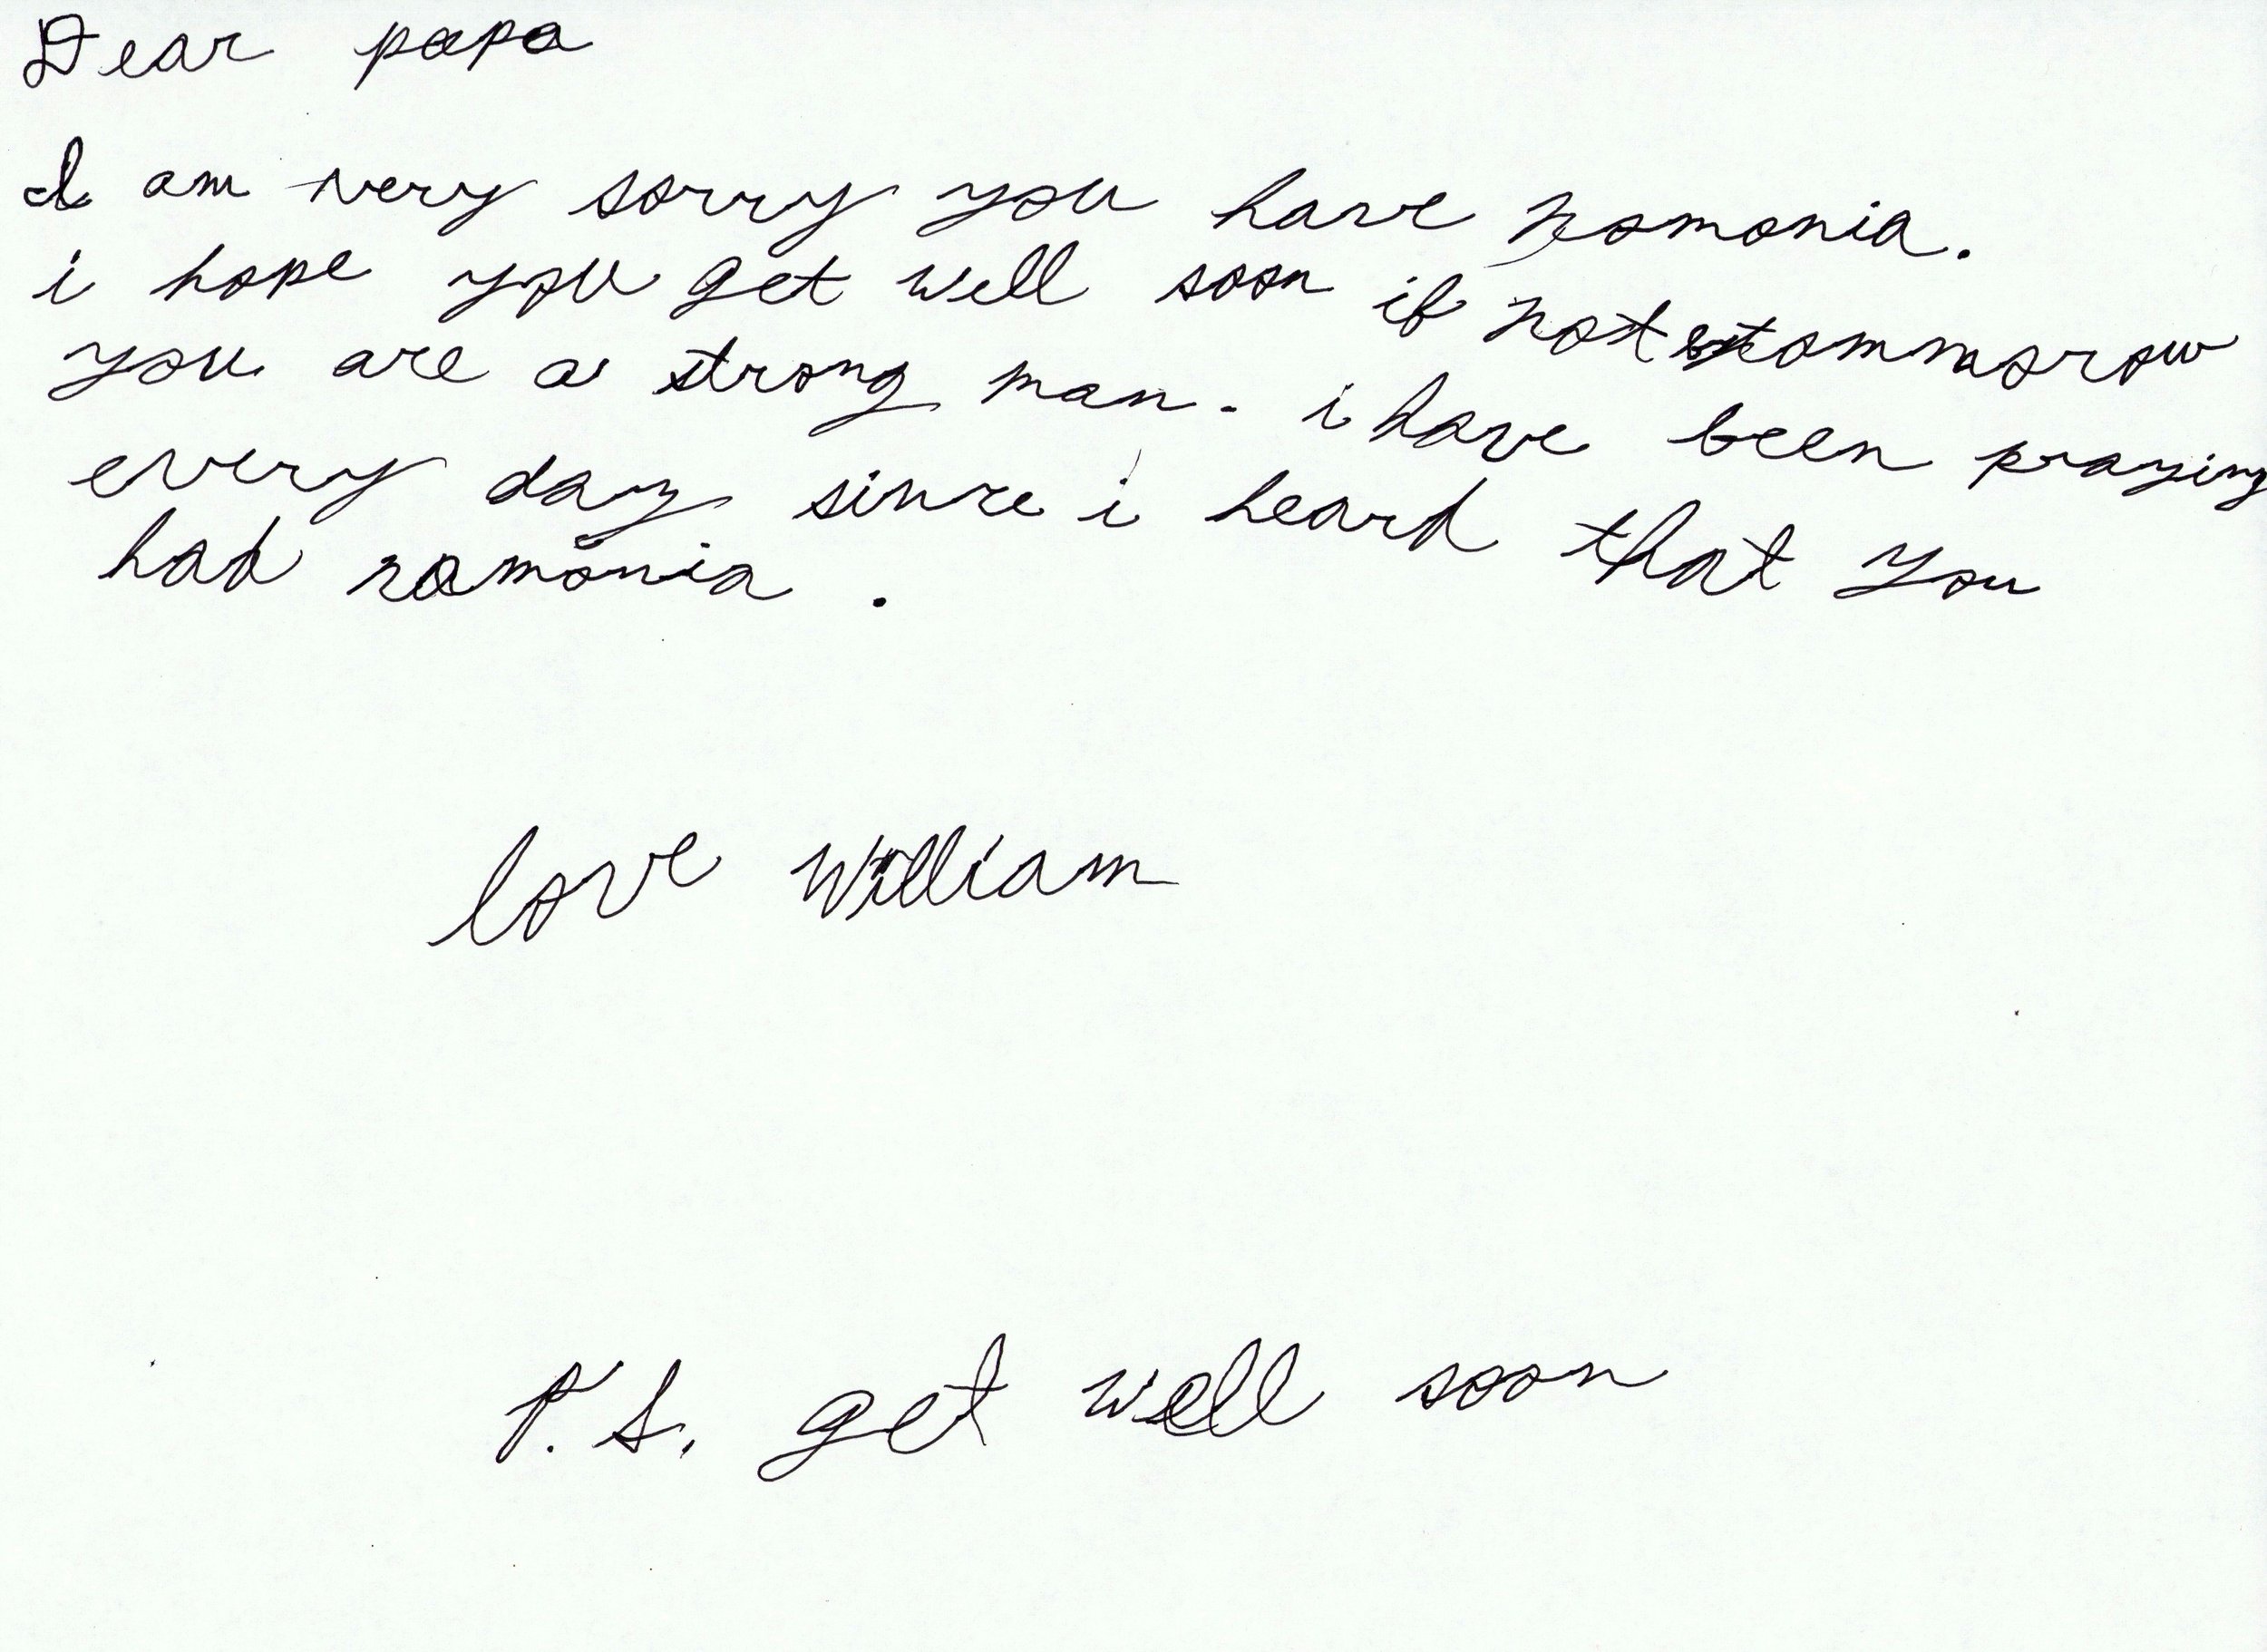 Dear papa
I am very sorry you have nomonia.
i hope you get well soon if not tommorow
you are a strong man. i have been praying
every day since i heard that you
had nomonia.
love William
P.S. get well soon